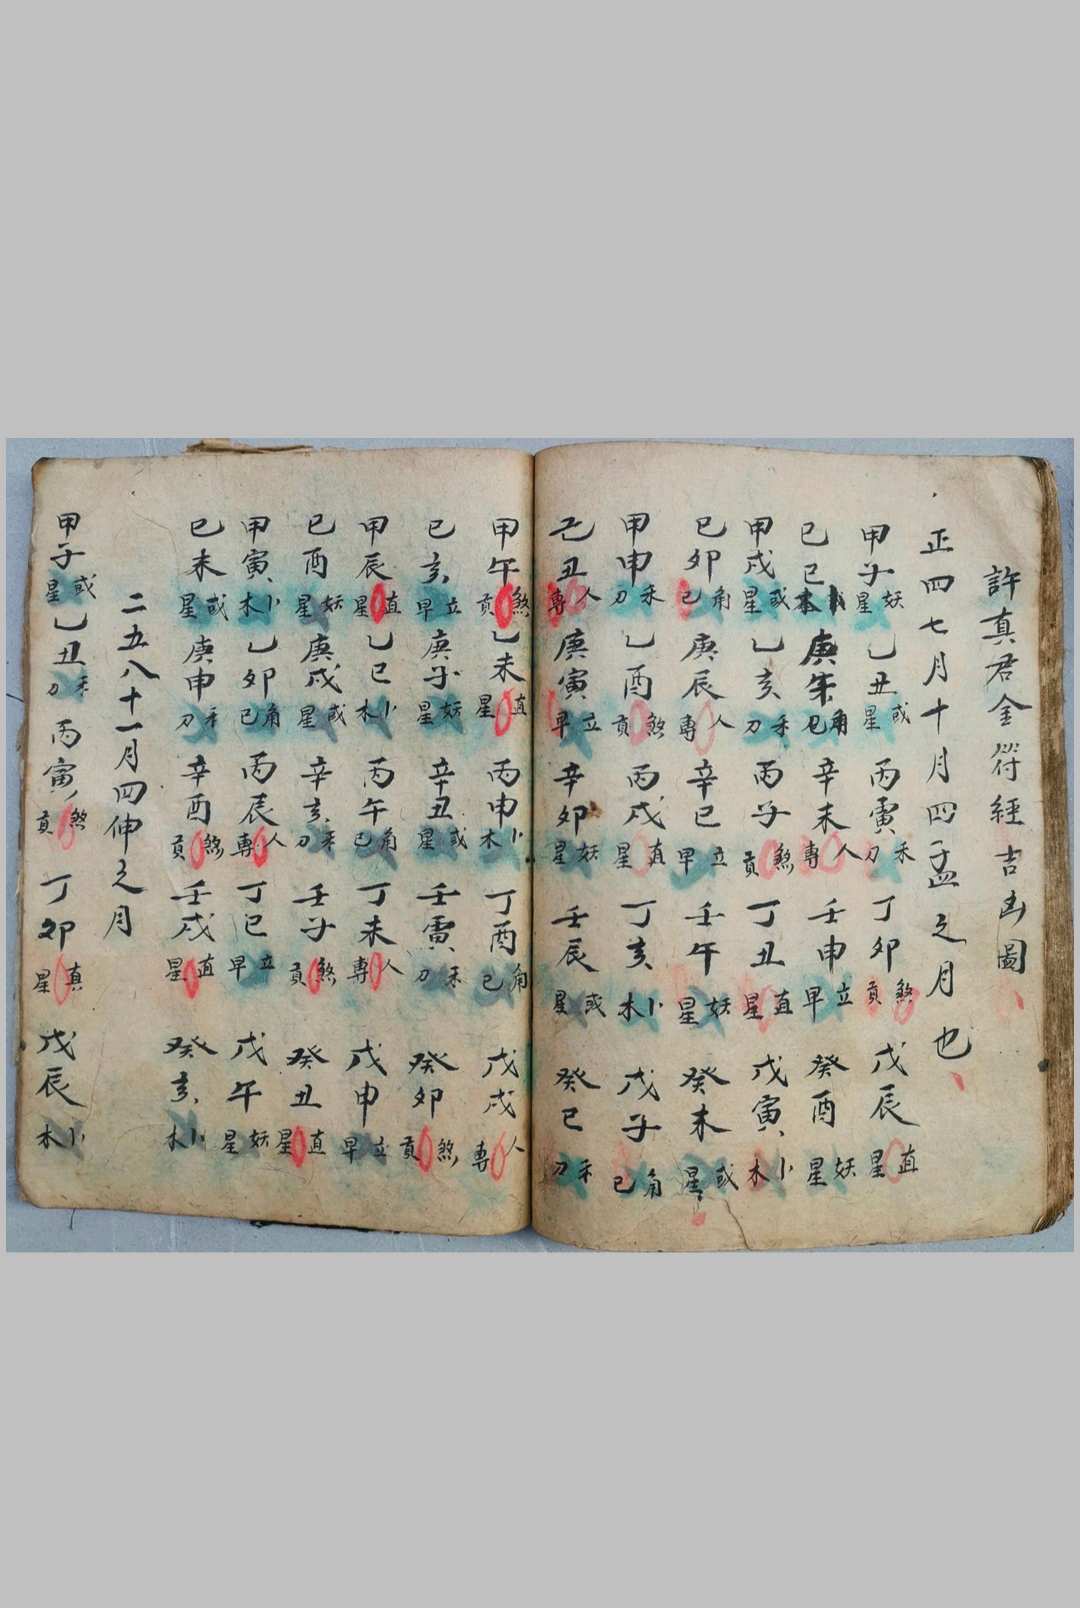 許真君金符經吉凶圖
正四七月十月四孟之月也
甲子妖星乙丑或星丙寅禾刀丁卯煞貢戊辰直星
己巳卜木庚午角已辛未人專壬申立早癸酉妖星
甲戌或星乙亥禾刀丙子煞貢丁丑直星戊寅卜木
己卯角已庚辰人專辛巳立早壬午妖星癸未或星
甲申禾刀乙酉煞貢丙戌直星丁亥卜木戊子角已
己丑人專庚寅立早辛卯妖星壬辰或星癸巳禾刀
甲午煞貢乙未直星丙申卜木丁酉角已戊戌人專
己亥立早庚子妖星辛丑或星壬寅禾刀癸卯煞貢
甲辰直星乙巳卜木丙午角已丁未人專戊申立早
己酉妖星庚戌或星辛亥禾刀壬子煞貢癸丑直星
甲寅卜木乙卯角已丙辰人專丁巳立早戊午妖星
己未或星庚申禾刀辛酉煞貢壬戌直星癸亥卜木
二五八十一月四伸之月
甲子或星乙丑禾刀丙寅煞貢丁卯真星戊辰卜木